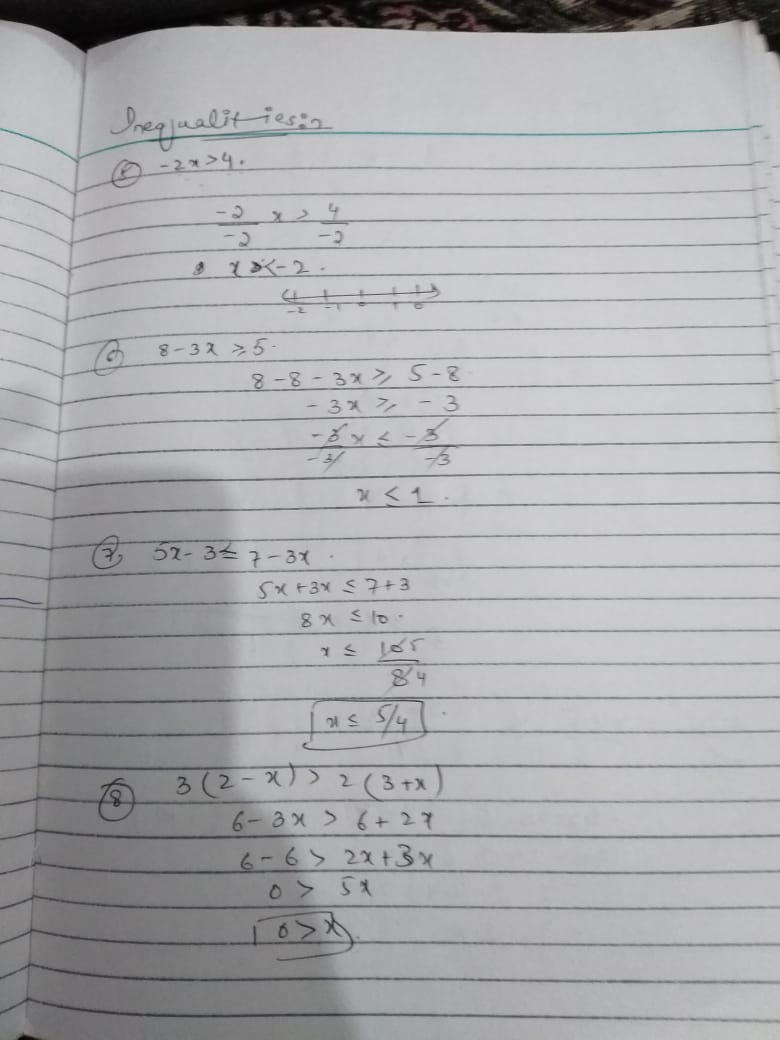 Inequalities:-
-2x > 4.
-2/-2 x > 4/-2
x < -2.
-2 -1 0 1
⑥ 8 - 3x ≥ 5.
8 - 8 - 3x ≥ 5 - 8
- 3x ≥ - 3
-3x/-3 ≤ -3/-3
x ≤ 1.
⑦ 5x - 3 ≤ 7 - 3x.
5x + 3x ≤ 7 + 3
8x ≤ 10.
x ≤ 10 5/8 4
x ≤ 5/4
⑧ 3(2 - x) > 2(3 + x)
6 - 3x > 6 + 2x
6 - 6 > 2x + 3x
0 > 5x
0 > x